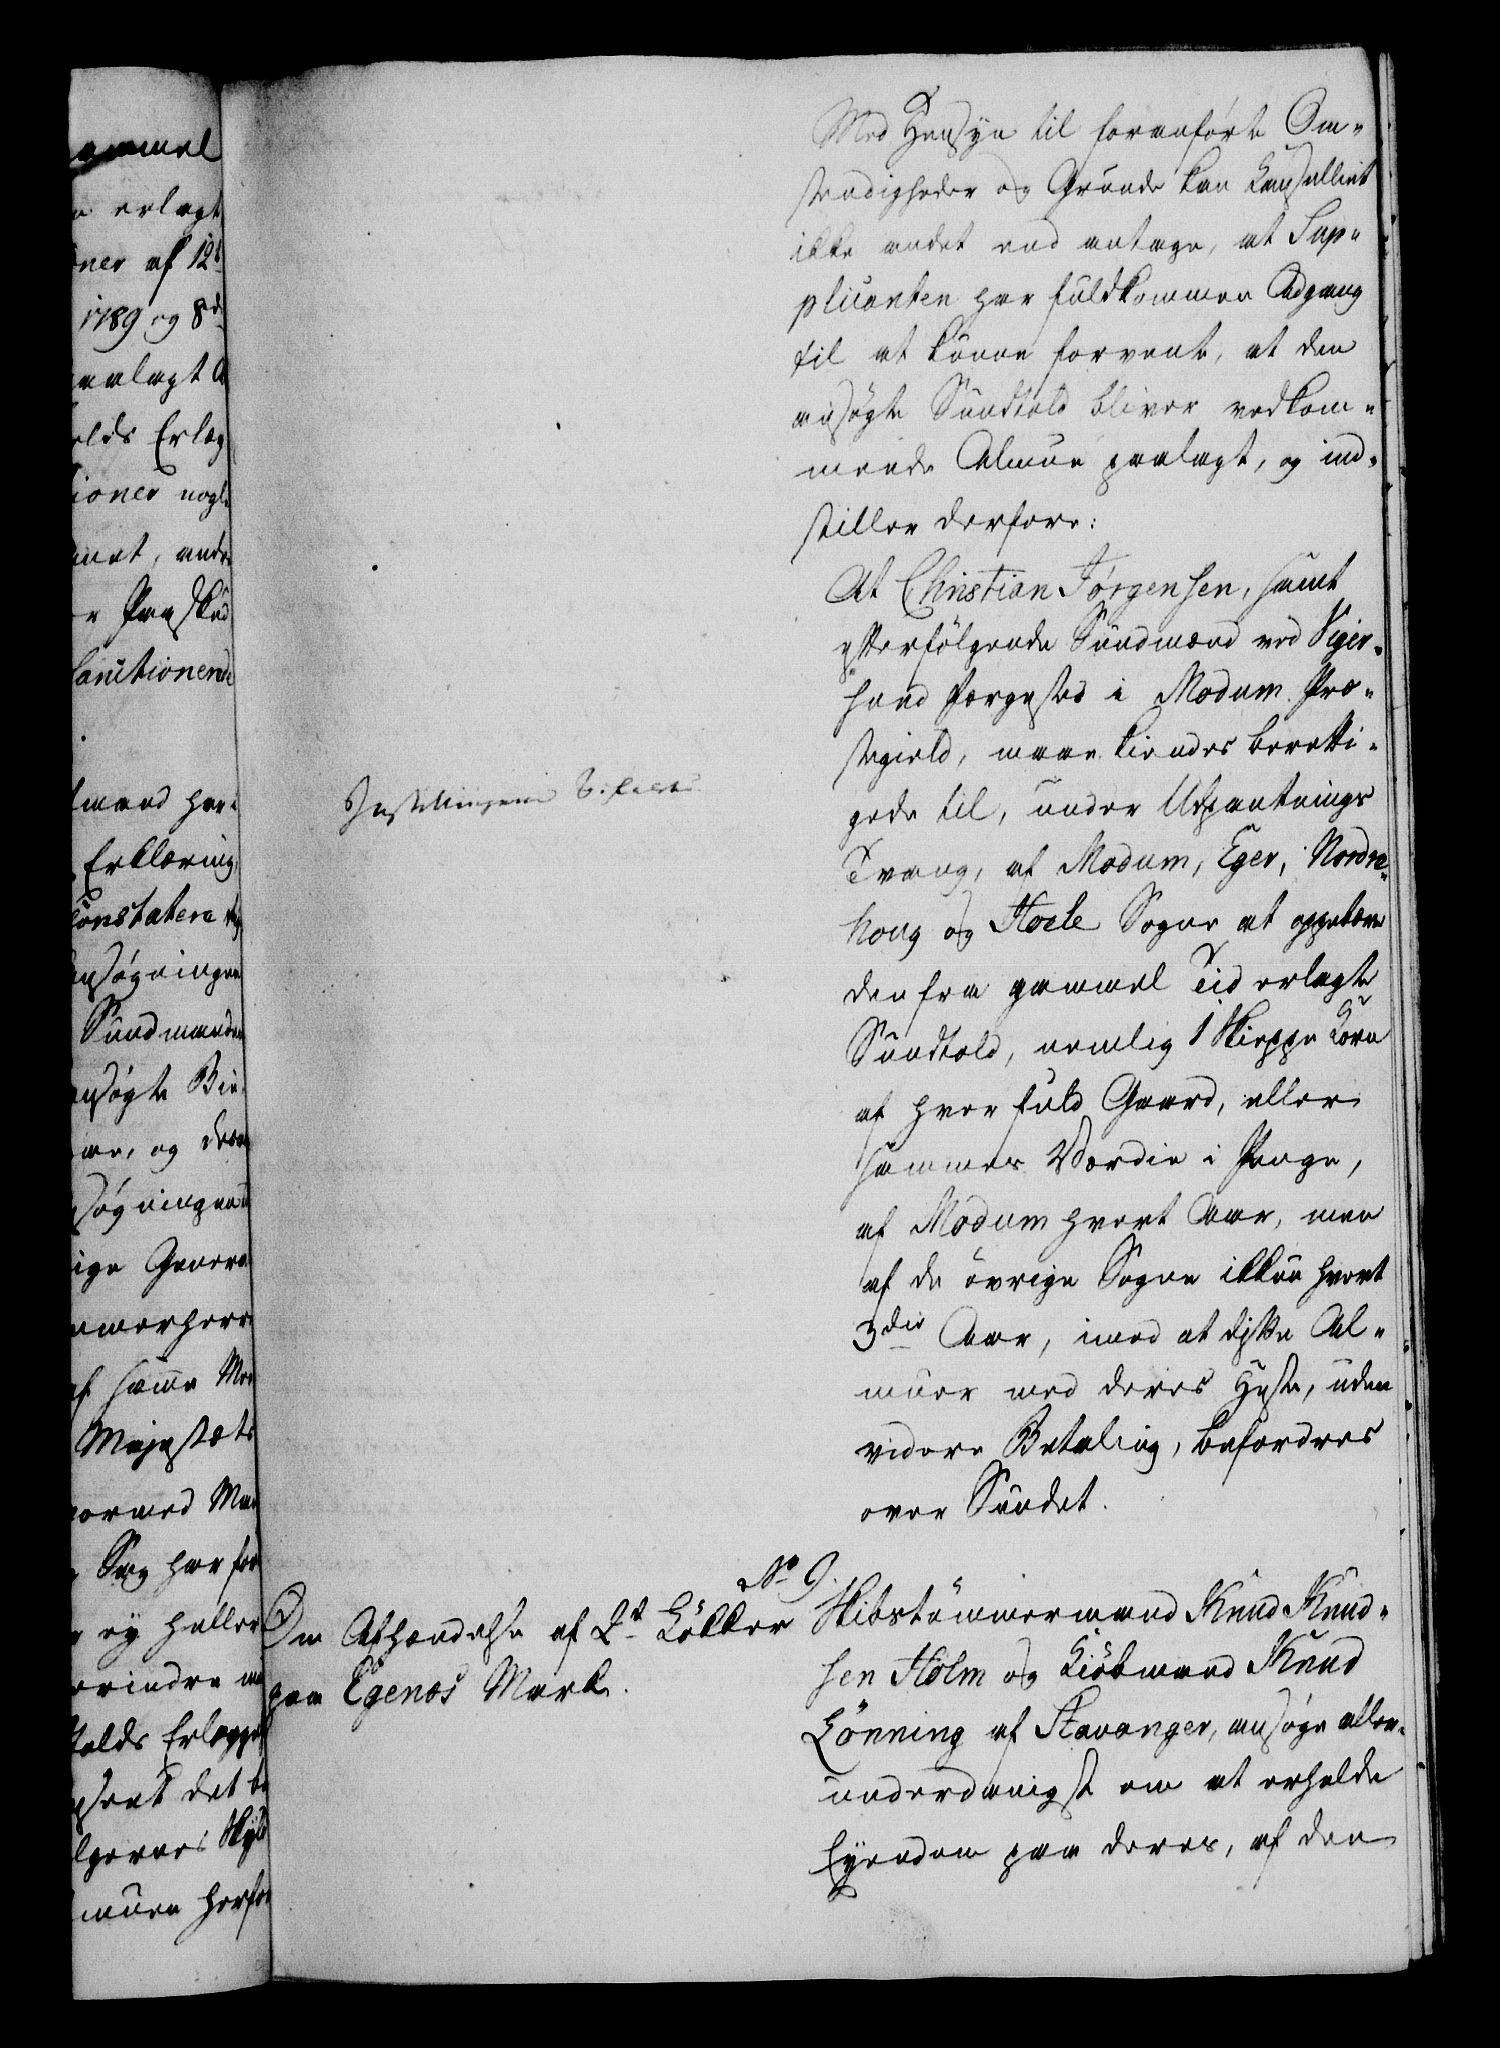 Med Hensyn til foranførte Om-
stændigheder og Grunde kan Cancelliet
ikke andet end antage, at Sup-
plicanten har fuldkommen Adgang
til at kunne forvente, at den
ansøgte Sundtold bliver vedkom-
mende Almue paalagt, og ind-
stiller derfore:
At Christian Jørgensen, samt
efterfølgende Sundmænd ved Viger-
sund Færgested i Modum Præ-
stegield, maae kiendes beretti-
gede til, under Udpantnings
Tvang, af Modum, Eger, Nordre-
houg og Hoele Sogne at oppebære
den fra gammel Tid erlagte
Sundtold, nemlig 1 Skieppe Korn
af hver fuld Gaard, eller
sammes Værdie i Penge,
af Modum hvert Aar, men
af de øvrige Sogne ikkun hvert
3die Aar, imod at disse Al-
muer med deres Heste, uden
videre Betaling, befordres
over Sundet.
Instillingen bifaldes
No 9.
Om Afhændelse af 2de Løkker
paa Egenæs Mark.
Skibstømmermand Knud Knud-
sen Holm og Kiøbmand Knud
Lönning af Stavanger, ansøge aller-
underdanigst om at erholde
Eyendom paa deres, af den
ammel
erlagt
oner af 12te
1789 og 8de
aalagt
olds Erlæg
ioner nogle
met, andre
Paaskud
Sanctionerede
mand har
Erklæring
Constatere
nsøgningen
Sundmanden
nsøgte
og
søgningen
ige Genera
mmerherre
af samme
Majestæts
formed
Sag har for
ey heller
erindre
tolds Erlægge
det
lgeres Skyld
muen herfor